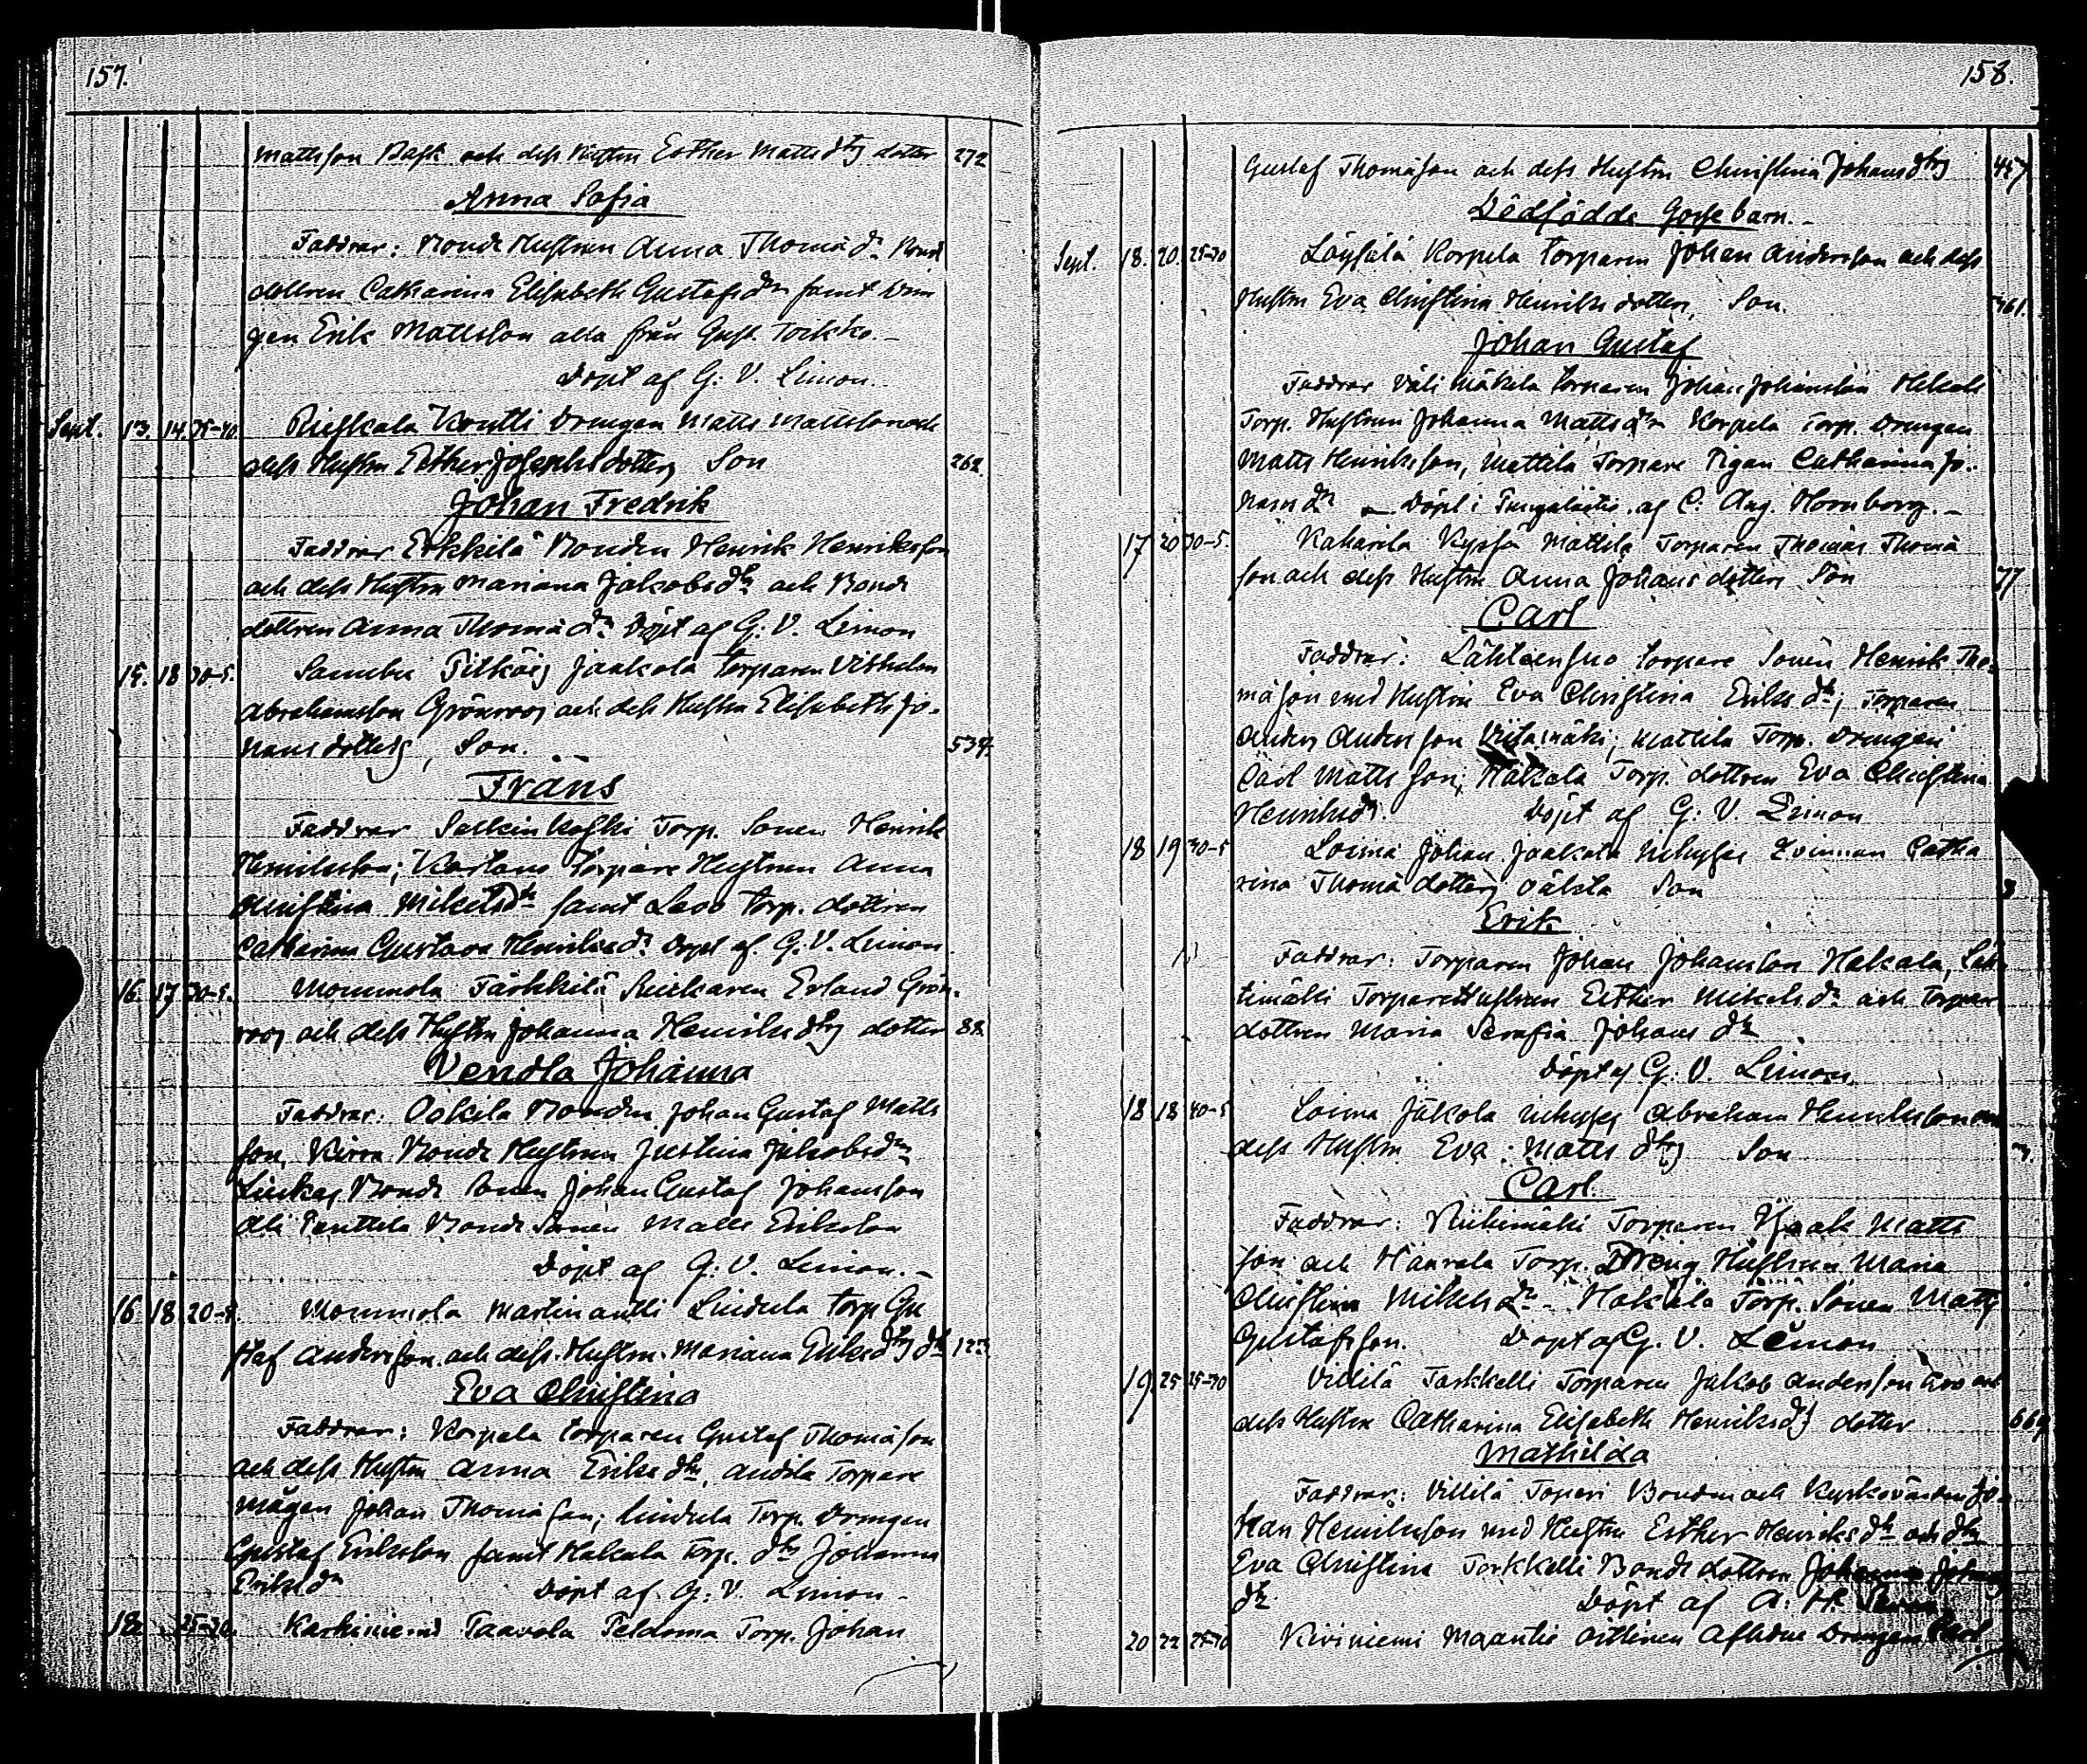 157.
Mattsson Rask och dess Hustru Esther Mattsdtrs dotter 272
Anna Sofia
Faddrar: Bonde Hustrun Anna Thomä dr Bond
dottren Catharina Elisabeth Gustafs dr samt Drän
gen Erik Mattsson alla från Gust. Toikko.
Döpt af G. V. Limon.
Sept. 13. 14. 35-40. Rieskala Kontti Drengen Matts Mattsson och
dess Hustru Esther Josephsdotters Son 262.
Johan Fredrik
Faddrar Erkkilä Bonden Henrik Henriksson
och dess Hustru Mariana Jakobs dr och Bonde
dottren Anna Thomä dr Döpt af G. V. Limon
15. 18 30-5. Sambu Pitkäis Jaakola Torparen Vilhelm
Abrahamsson Grönroos och dess Hustru Elisabeth Jo-
hans dotters, Son. 539.
Frans
Faddrar Selkinkoski Torp. Sonen Henrik
Henriksson; Kartano Torpare Hustrun Anna
Christina Mikelsdr samt Lavo Torp. dottren
Catharina Gustava Henriksdr Döpt af G. V. Limon
16. 17 30-5. Mommola Tärkkilä Inhkaren Erland Grön-
roos och dess Hustru Johanna Henriks dtrs dotter 88.
Vendla Johanna
Faddrar: Ookila Bonden Johan Gustaf Matts
son, Kirra Bonde Hustrun Justina Jakobsdr
Liukas Bonde Sonen Johan Gustaf Johansson
Ali Penttilä Bonde Sonen Matts Eriksson
Döpt af G. V. Limon.
16 18 20-5. Mommola Martin antti Lindula Torp Gu
staf Andersson och dess Hustru Mariana Eriks dtrs dr 123.
Eva Christina
Faddrar: Korpela Torparen Gustaf Thomäson
och dess Hustru Anna Eriks dr, Andila Torpare
Mågen Johan Thomäson; Lindula Torp. Drengen
Gustaf Eriksson samt Hakala Torp. dtr Johanna
Eriks dr Döpt af G. V. Limon
18. 25-30. Karhiniemi Taavola Peldoma Torp. Johan
158.
Gustaf Thomäson och dess Hustru Christina Johans dtrs 457
Dödfödde Gossebarn.
Sept. 18. 20. 25-30 Löysälä Korpela Torparen Johan Andersson och dess
Hustru Eva Christina Henriks dotters, Son. 361.
Johan Gustaf
Faddrar Väli Mäkela Torparen Johan Johansson Hakala
Torp. Hustrun Johanna Matts dr Korpela Torp. Drengen
Matts Henriksson, Mattila Torpare Pigan Catharina Jo-
hans dr Döpt i Pungalaitio af C. Aug. Hornborg.
17 20 30-5. Kaharila Kyssä Mattila Torparen Thomas Thomä
son och dess Hustru Anna Johans dotters Son 77
Carl
Faddrar: Lähteensuo Torpare Sonen Henrik Tho-
mäson med Hustrun Eva Christina Eriks dr; Torparen
Anders Andersson Viitamäki, Mattila Torp. Drengen
Carl Mattsson; Hakala Torp. dottren Eva Christina
Henriksdr. Döpt af G. V. Limon
18 19 30-5 Loima Johan Jaakola Inhyses Qvinnan Catha
rina Thomä dotters oäkta Son 3
Erik
Faddrar: Torparen Johan Johansson Hakala, Läh-
timälli Torpare Hustrun Esther Mikels dr och Torpare
dottren Maria Serafia Johans dr
Döpt af G. V. Limon.
18 18 40-5 Loima Jakola Inhyses Abraham Henriksson och
dess Hustru Eva Matts dtrs Son 3.
Carl.
Faddrar: Riihimäki Torparen Isaak Matts
son och Hanvala Torp. Dreng Hustrun Maria
Christina Mikels dr Hakala Torp. Sonen Matts
Gustafsson. Döpt af G. V. Limon
19. 25 25-30 Villilä Tarkkelli Torparen Jakob Andersson och
dess Hustru Catharina Elisabeth Henriksdtrs dotter 669
Mathilda
Faddrar: Villilä Toperi Bonden och Kyrkovärden Jo-
han Henriksson med Hustru Esther Henriks dr och dtr
Eva Christina Tarkkelli Bonde dottren Johanna Johans
dr Döpt af A. H.
20 22 25-30 Kiviniemi Maantie oittinen Afsked Drengen Carl